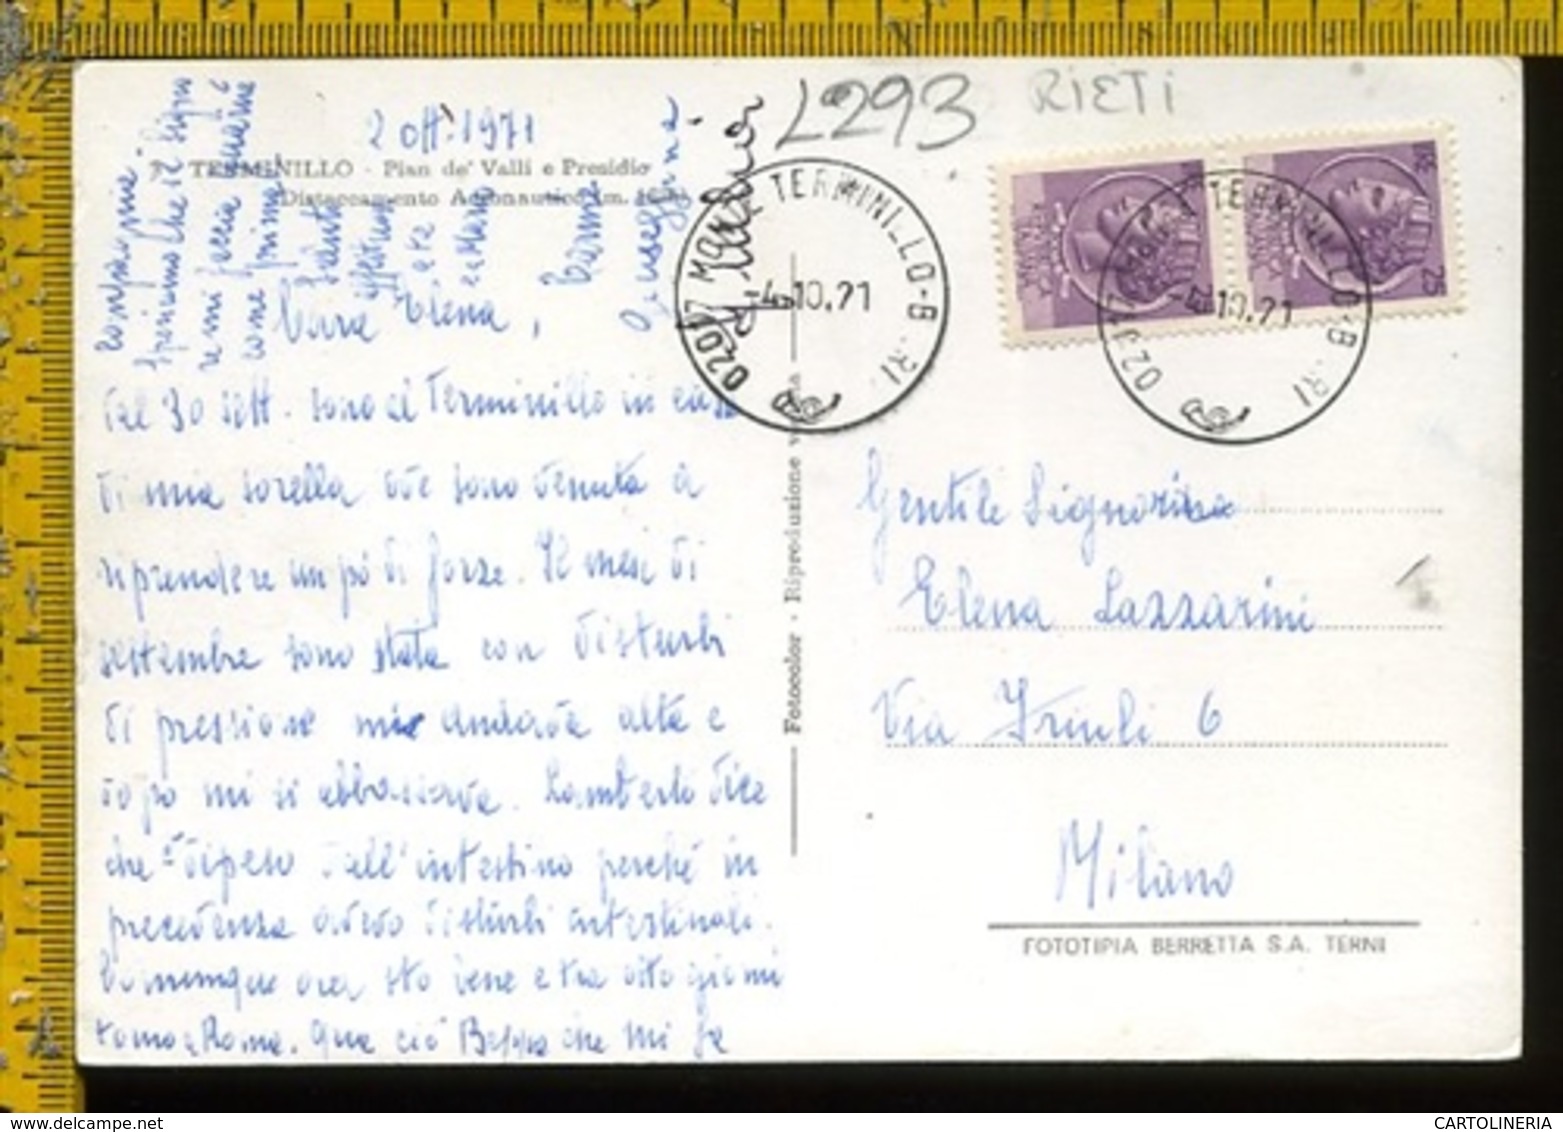 L293 RIETI
2 ott. 1971
TERMINILLO - Pian de' Valli e Presidio
Distaccamento Aeronautico (m.
Cara Elena,
Dal 30 sett. sono al Terminillo in casa
di mia sorella ove sono venuta a
riprendere un pò di forze. Il mese di
settembre sono stata con disturbi
di pressione mi andava alta e
dopo mi si abbassava. Lamberto dice
che dipeso dall'intestino perché in
precedenza avevo disturbi intestinali.
Comunque ora sto bene e tra otto giorni
torno a Roma. Qua ciò Beppe che mi fa
compagnia.
Speriamo che il Signo
re mi faccia
come prima.
Giuseppina
02017 MONTE TERMINILLO-B .RI.
-4.10.71
02017 MONTE TERMINILLO-B .RI.
-4.10.71
25
Fotocolor - Riproduzione vietata
Gentile Signorina
Elena Lazzarini
Via Friuli 6
Milano
FOTOTIPIA BERRETTA S.A. TERNI
CARTOLINERIA